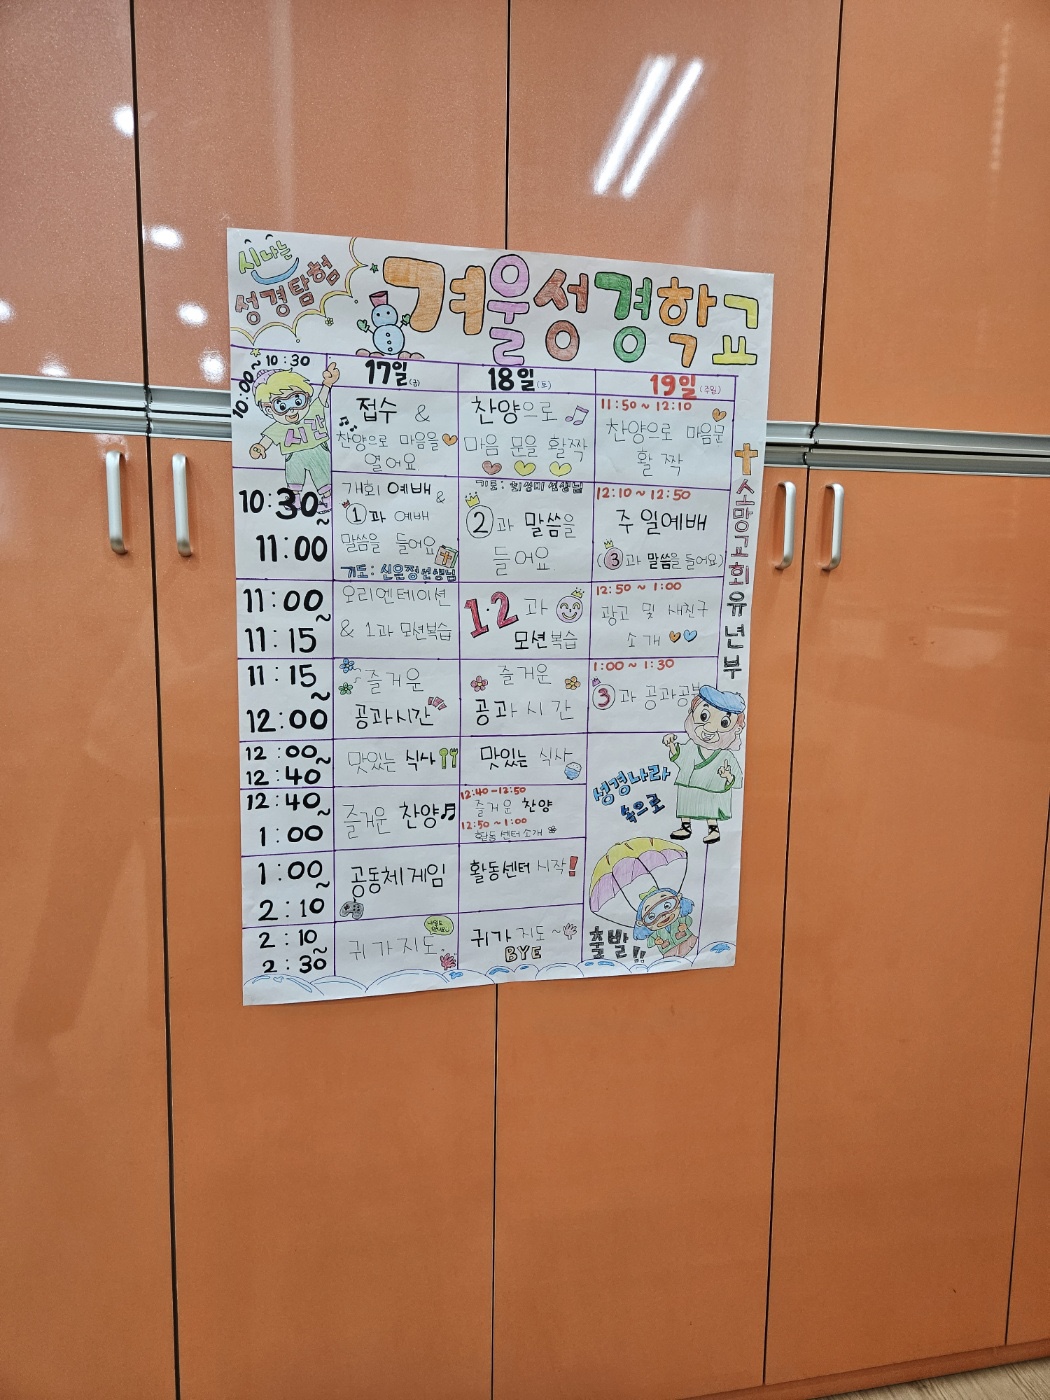 시나는
성경탐험
겨울성경학교
17일(금)
18일(토)
19일(주일)
10:00~10:30
시간
접수 &
찬양으로 마음을
열어요
찬양으로
마음 문을 활짝
11:50~12:10
찬양으로 마음문
활짝
10:30~
11:00
개회 예배 &
①과 예배
말씀을 들어요
기도: 신은정선생님
기도: 최성미선생님
②과 말씀을
들어요
12:10~12:50
주일예배
(③과 말씀을 들어요)
11:00~
11:15
오리엔테이션
& 1과 모션복습
1·2과
모션복습
12:50~1:00
광고 및 새친구
소개
11:15~
12:00
즐거운
공과시간
즐거운
공과시간
1:00~1:30
③과 공과공부
12:00~
12:40
맛있는 식사
맛있는 식사
12:40~
1:00
즐거운 찬양
12:40-12:50
즐거운 찬양
12:50~1:00
활동센터소개
1:00~
2:10
공동체게임
활동센터 시작!
2:10~
2:30
귀가지도.
귀가지도~
BYE
성경나라
속으로
출발!!
소망교회유년부